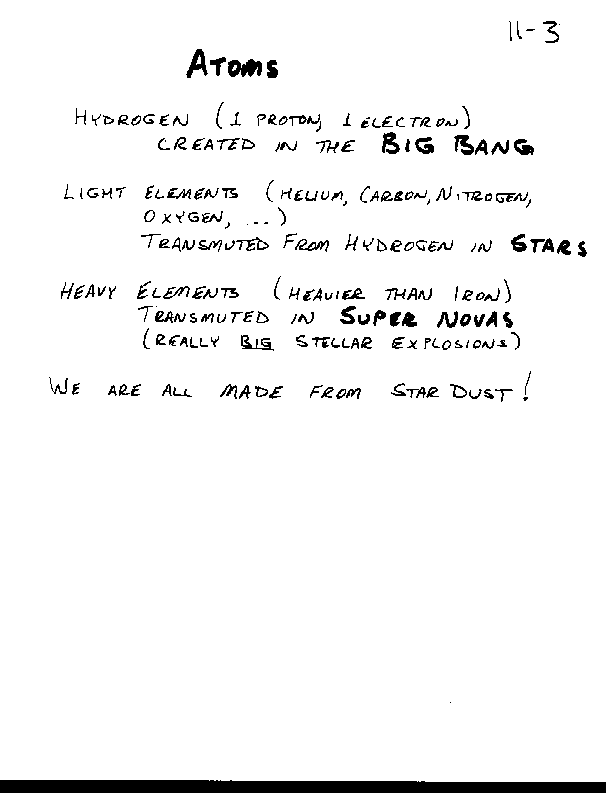 11-3
ATOMS
HYDROGEN (1 PROTON, 1 ELECTRON)
CREATED IN THE BIG BANG
LIGHT ELEMENTS (HELIUM, CARBON, NITROGEN,
OXYGEN, ...)
TRANSMUTED FROM HYDROGEN IN STARS
HEAVY ELEMENTS (HEAVIER THAN IRON)
TRANSMUTED IN SUPER NOVAS
(REALLY BIG STELLAR EXPLOSIONS)
WE ARE ALL MADE FROM STAR DUST!